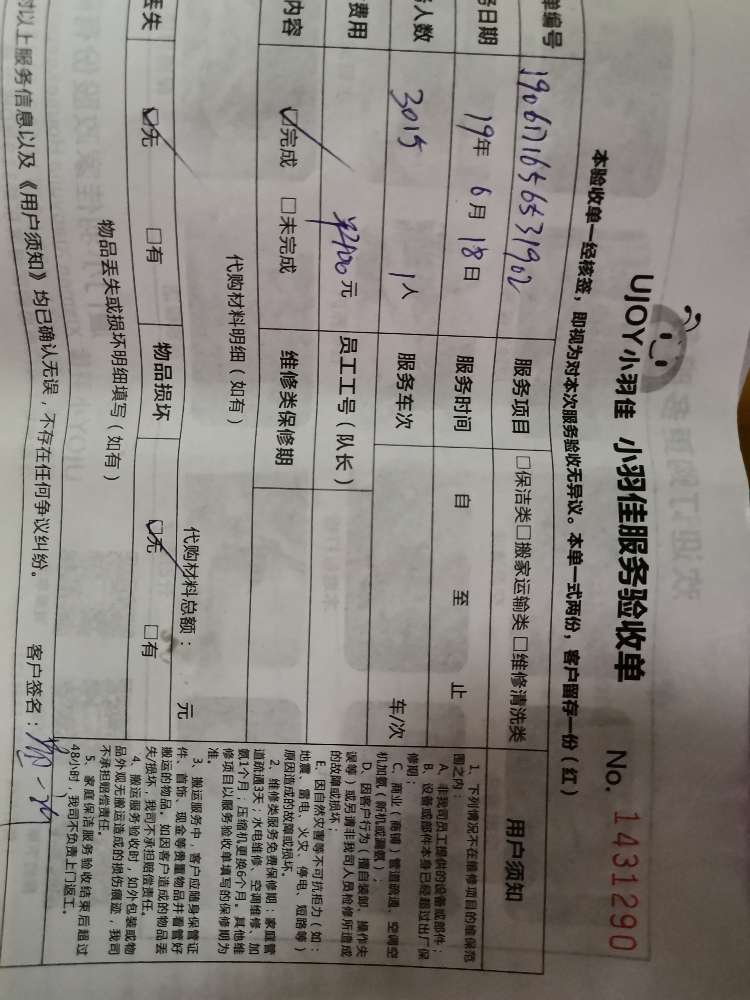 UJOY小羽佳 小羽佳服务验收单 No. 1431290
本验收单一经核签，即视为对本次服务验收无异议。本单一式两份，客户留存一份（红）
单编号 服务项目 □保洁类□搬家运输类□维修清洗类
务日期 19年 6月 18日 服务时间 自 至 止
人数 3015 1人 服务车次 车/次
费用 元 员工工号（队长）
内容 ☑完成 □未完成 维修类保修期
代购材料明细（如有） 代购材料总额： 元
丢失 ☑无 □有 物品损坏 ☑无 □有
物品丢失或损坏明细填写（如有）
对以上服务信息以及《用户须知》均已确认无误，不存在任何争议纠纷。 客户签名：
用户须知
1、下列情况不在维修项目的维保范
围之内：
A、非我司员工提供的设备或部件；
B、设备或部件本身已经超过出厂保
修期；
C、商业（商博）管道疏通、空调空
机加氨（新机或漏氨）；
D、因客户行为（擅自装卸、操作失
误等）或另请非我司人员检修所造成
的故障或损坏；
E、因自然灾害等不可抗拒力（如：
地震、雷电、火灾、停电、短路等）
原因造成的故障或损坏。
2、维修类服务免费保修期：家庭管
道疏通3天；水电维修、空调维修、加
氨1个月；压缩机更换6个月。其他维
修项目以服务验收单填写的保修期为
准。
3、搬运服务中，客户应随身保管证
件、首饰、现金等贵重物品并看管好
搬运的物品。如因客户造成的物品丢
失/损坏，我司不承担赔偿责任。
4、搬运服务验收时，如外包装或物
品外观无搬运造成的损伤痕迹，我司
不承担赔偿责任。
5、家庭保洁服务验收结束后超过
48小时，我司不负责上门返工。